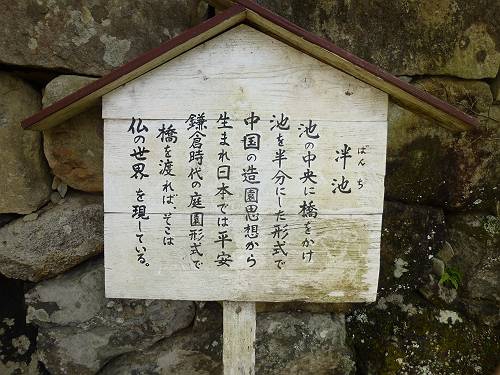 ばんち
泮池
池の中央に橋をかけ
池を半分にした形式で
中国の造園思想から
生まれ日本では平安
鎌倉時代の庭園形式で
橋を渡れば、そこは
仏の世界を現している。